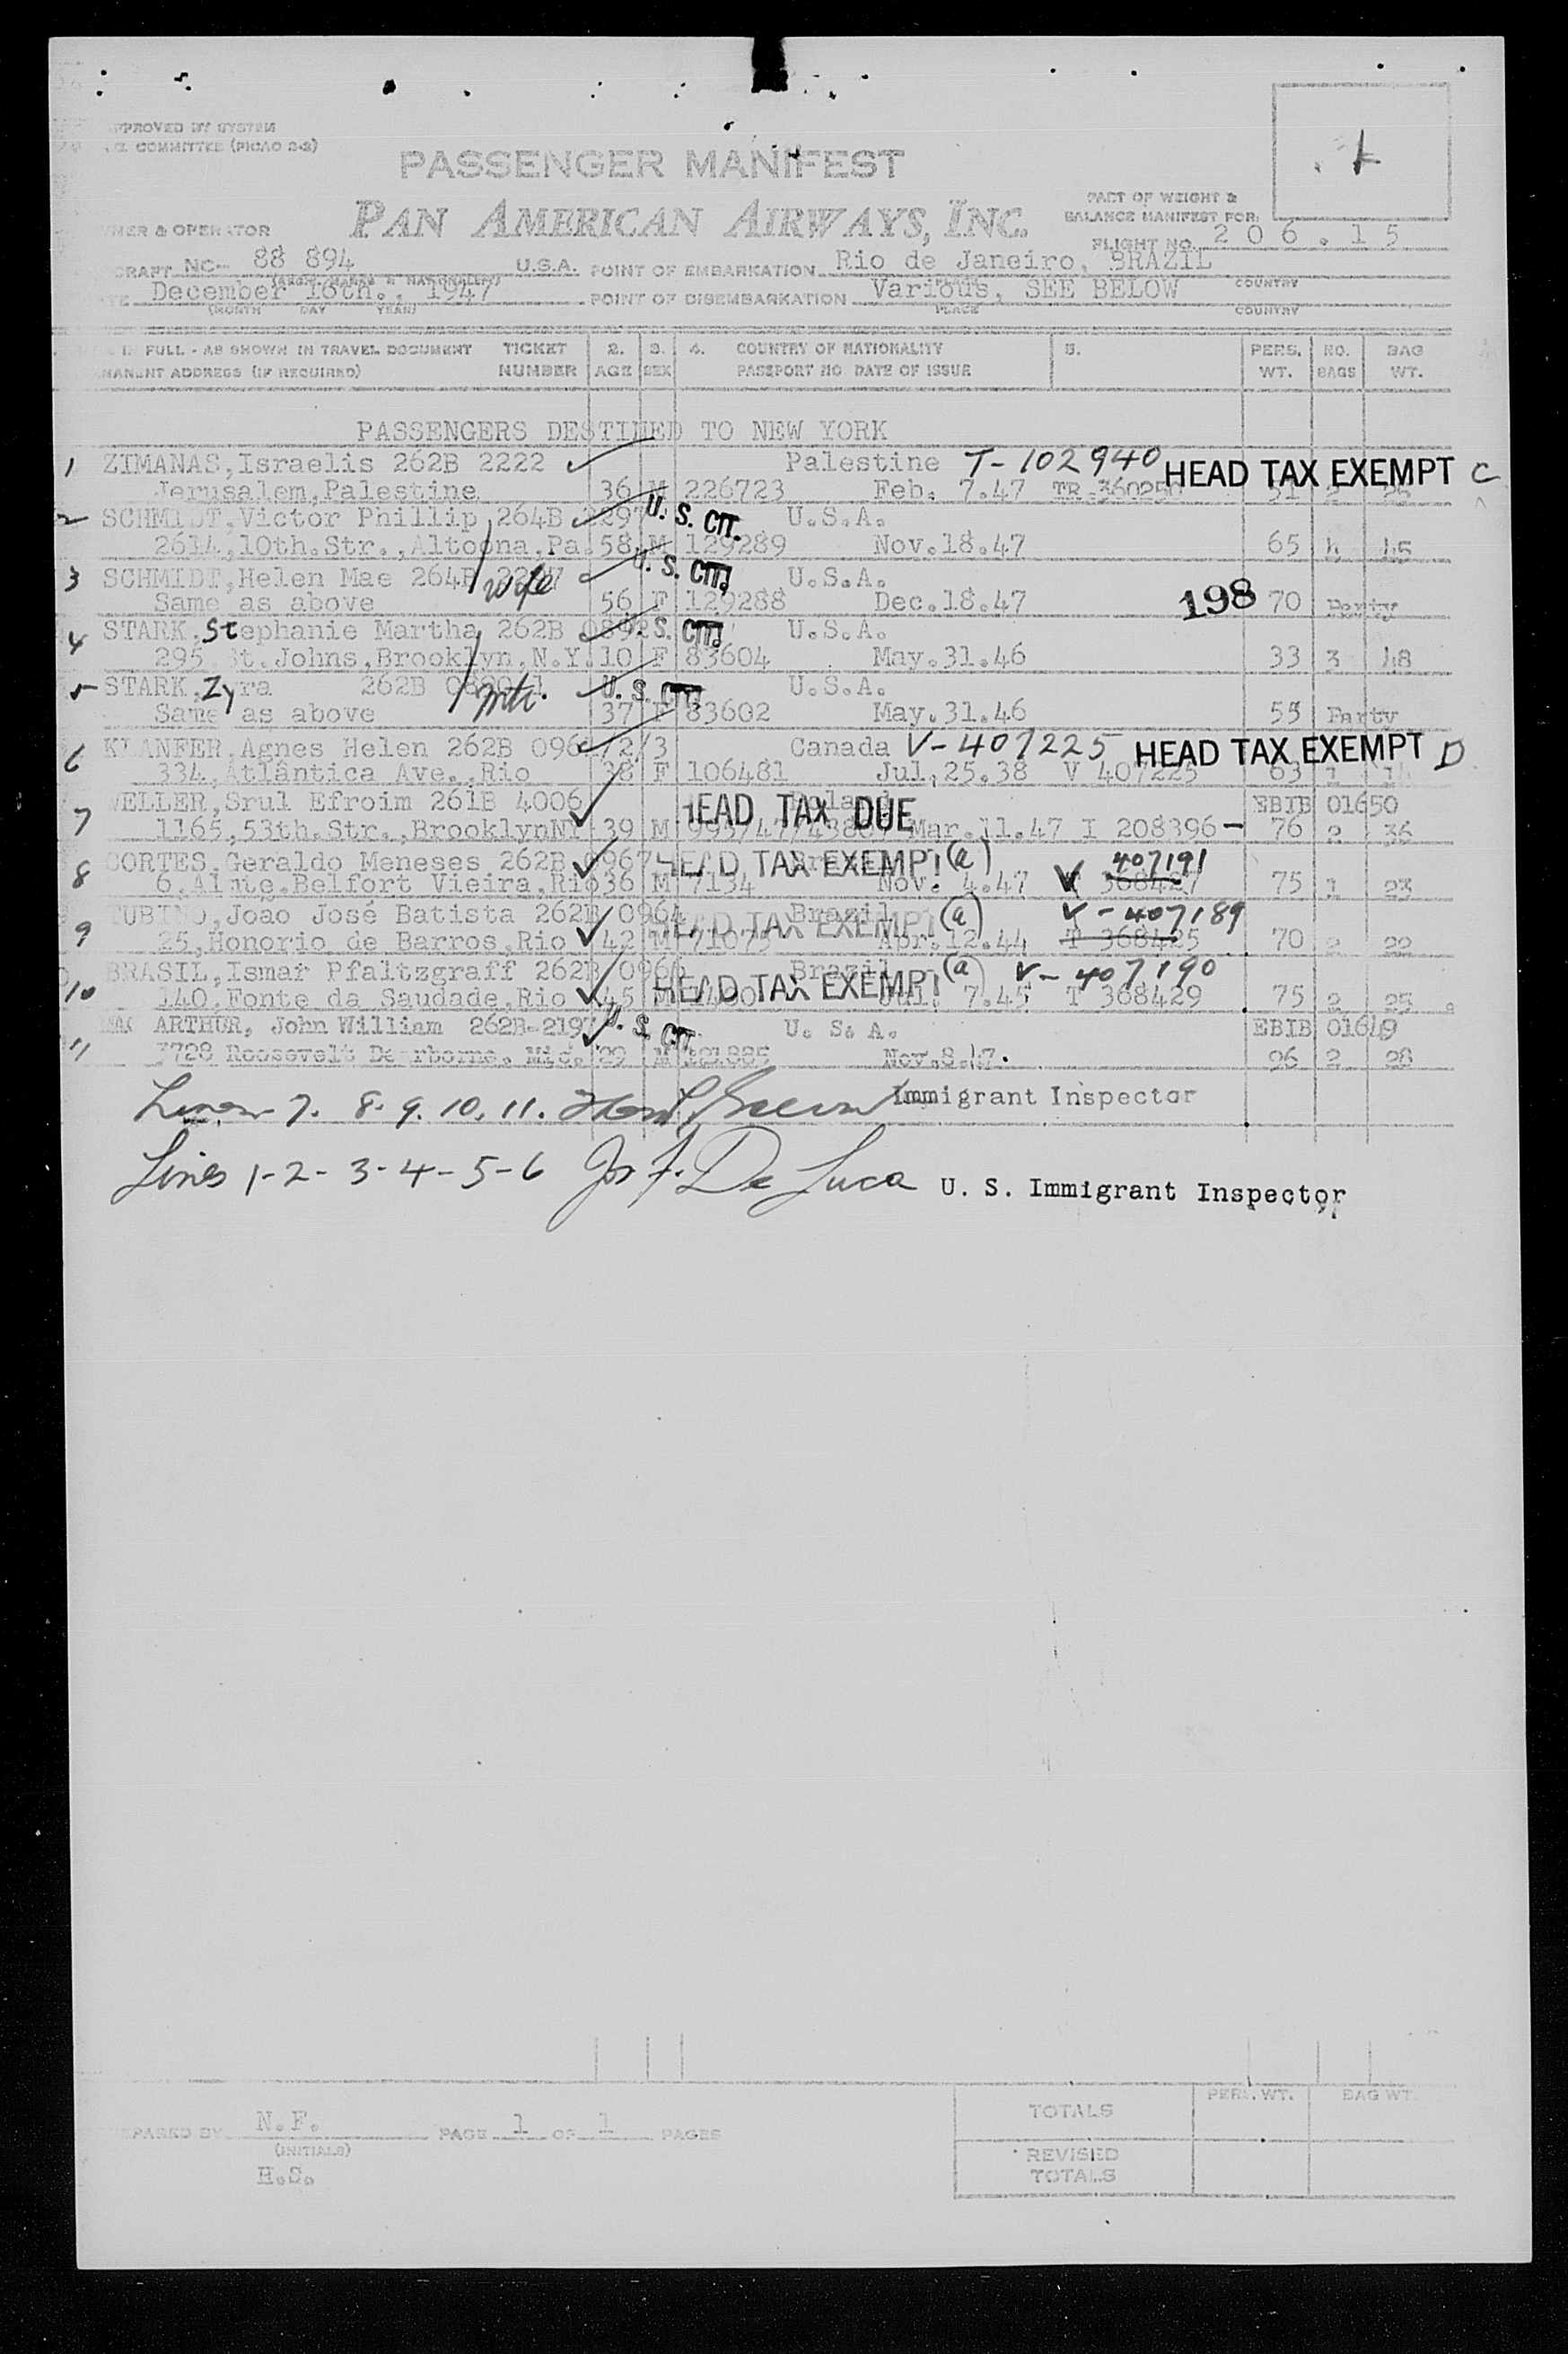 PPROVED BY SYSTEM
COMMITTEE (PICAO 2-2)
PASSENGER MANIFEST
PAN AMERICAN AIRWAYS, INC.
PART OF WEIGHT &
BALANCE MANIFEST FOR:
NER & OPERATOR
FLIGHT NO. 206.15
CRAFT NC- 88 894 U.S.A. POINT OF EMBARKATION Rio de Janeiro, BRAZIL
December 16th., 1947 POINT OF DISEMBARKATION Various, SEE BELOW COUNTRY
(MONTH DAY YEAR) PLACE COUNTRY
IN FULL - AS SHOWN IN TRAVEL DOCUMENT TICKET 2. 3. 4. COUNTRY OF NATIONALITY 5. PERS. NO. BAG
MANENT ADDRESS (IF REQUIRED) NUMBER AGE SEX PASSPORT NO DATE OF ISSUE WT. BAGS WT.
PASSENGERS DESTINED TO NEW YORK
1 ZIMANAS, Israelis 262B 2222 Palestine T-102940 HEAD TAX EXEMPT C
Jerusalem, Palestine 36 M 226723 Feb. 7.47
2 SCHMIDT, Victor Phillip 264B 2297 U.S. CIT. U.S.A.
2614, 10th. Str., Altoona, Pa. 58 M 129289 Nov.18.47 65 4 45
3 SCHMIDT, Helen Mae 264B wife U.S. CIT. U.S.A.
Same as above 56 F 129288 Dec.18.47 198 70 Party
4 STARK, Stephanie Martha 262B U.S. CIT. U.S.A.
295 St. Johns, Brooklyn, N.Y. 10 F 83604 May.31.46 33 3 48
5 STARK, Zyra 262B mth. U.S. CIT. U.S.A.
Same as above 37 F 83602 May.31.46 55 Party
6 KLANFER, Agnes Helen 262B 096 /2/3 Canada V-407225 HEAD TAX EXEMPT D
334, Atlântica Ave., Rio 38 F 106481 Jul, 25.38 V 407225 63
7 WELLER, Srul Efroim 261B 4006 HEAD TAX DUE EBIB 01650
1165, 53th. Str., Brooklyn NY 39 M Mar.11.47 I 208396 - 76 2 36
8 CORTES, Geraldo Meneses 262B 0967 HEAD TAX EXEMPT (a) 407191
6, Almte. Belfort Vieira, Rio 36 M 7134 Nov. 4.47 V 368427 75 1 23
9 TUBINO, Joao José Batista 262B 0964 HEAD TAX EXEMPT (a) Brazil V-407189
25, Honorio de Barros, Rio 42 M 71075 Apr.12.44 T 368425 70 2 22
10 BRASIL, Ismar Pfaltzgraff 262B 0966 HEAD TAX EXEMPT (a) Brazil V-407190
140, Fonte da Saudade, Rio 45 M Jul. 7.45 T 368429 75 2 25
ARTHUR, John William 262B-2197 U.S. CIT. U. S. A. EBIB 01649
11 Roosevelt Dearborne, Mic. 29 M Nov.8.47. 96 2 28
Lines 7. 8. 9. 10. 11. Immigrant Inspector
Lines 1-2-3-4-5-6 Jos F. De Luca U. S. Immigrant Inspector
PERS. WT. BAG WT.
TOTALS
EPARED BY N.F. PAGE 1 OF 1 PAGES
(INITIALS)
REVISED
TOTALS
H.S.